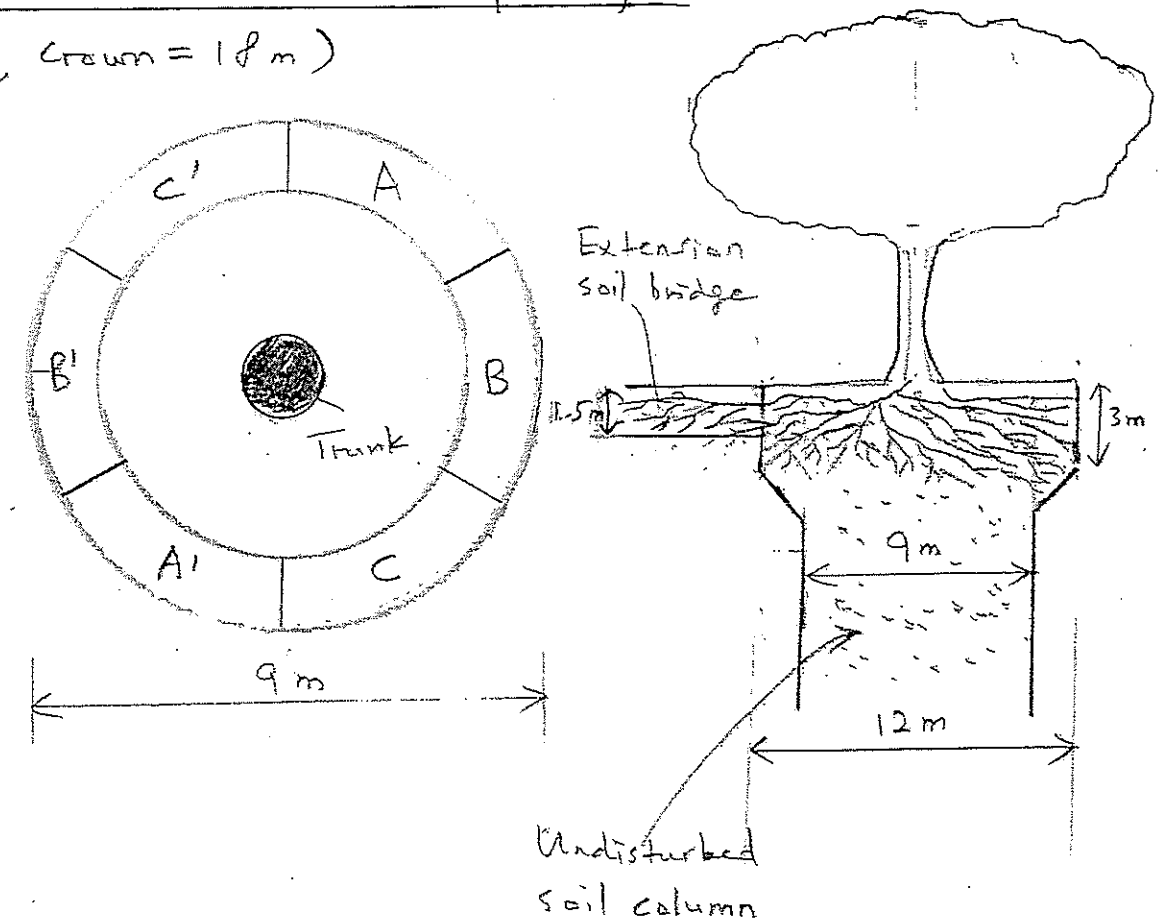 crown = 18 m )
C'
A
B'
B
A'
C
Trunk
9 m
Extension
soil bridge
1.5m
3m
9 m
12 m
Undisturbed
soil column